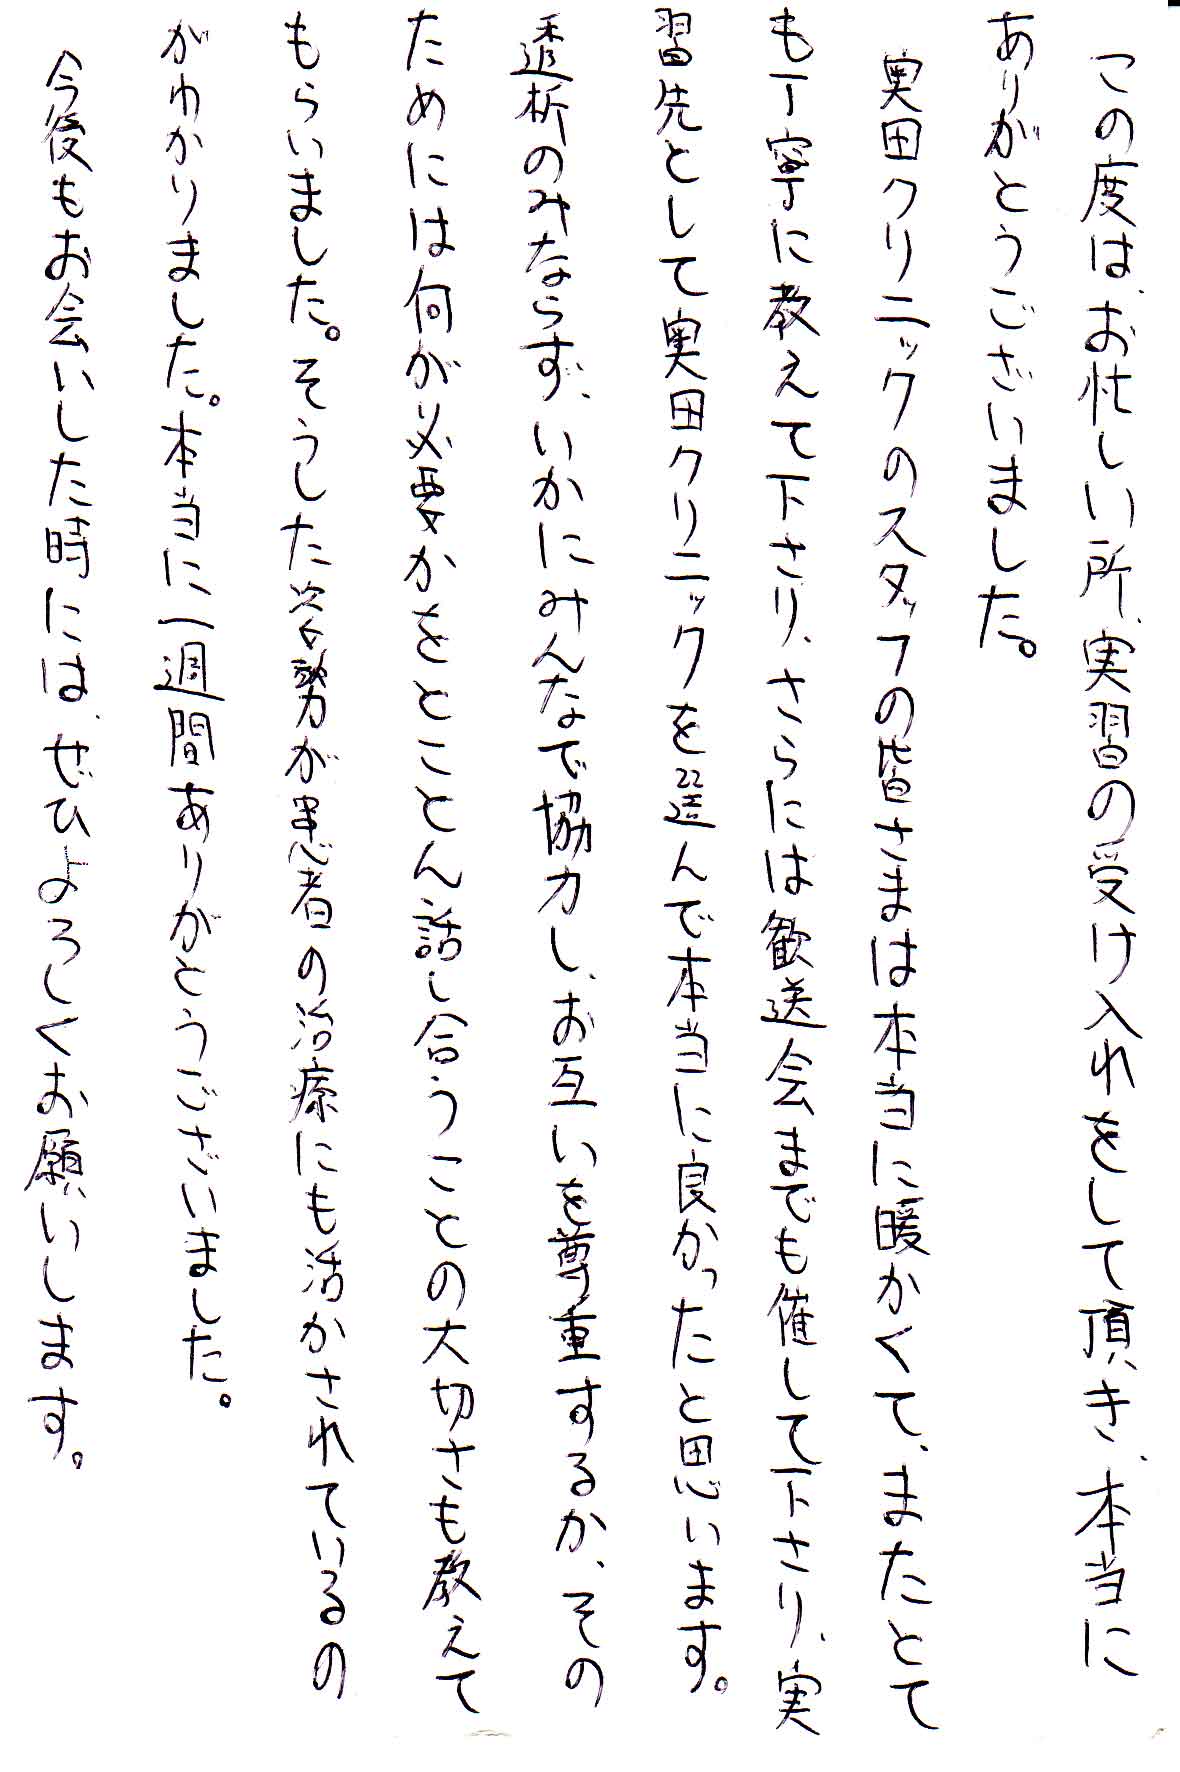 この度は、お忙しい所、実習の受け入れをして頂き、本当に
ありがとうございました。
実田クリニックのスタッフの皆さまは本当に暖かくて、またとて
も丁寧に教えて下さり、さらには歓送会までも催して下さり、実
習先として実田クリニックを選んで本当に良かったと思います。
透析のみならず、いかにみんなで協力し、お互いを尊重するか、その
ためには何が必要かをとことん話し合うことの大切さも教えて
もらいました。そうした姿勢が患者の治療にも活かされているの
がわかりました。本当に一週間ありがとうございました。
今後もお会いした時には、ぜひよろしくお願いします。